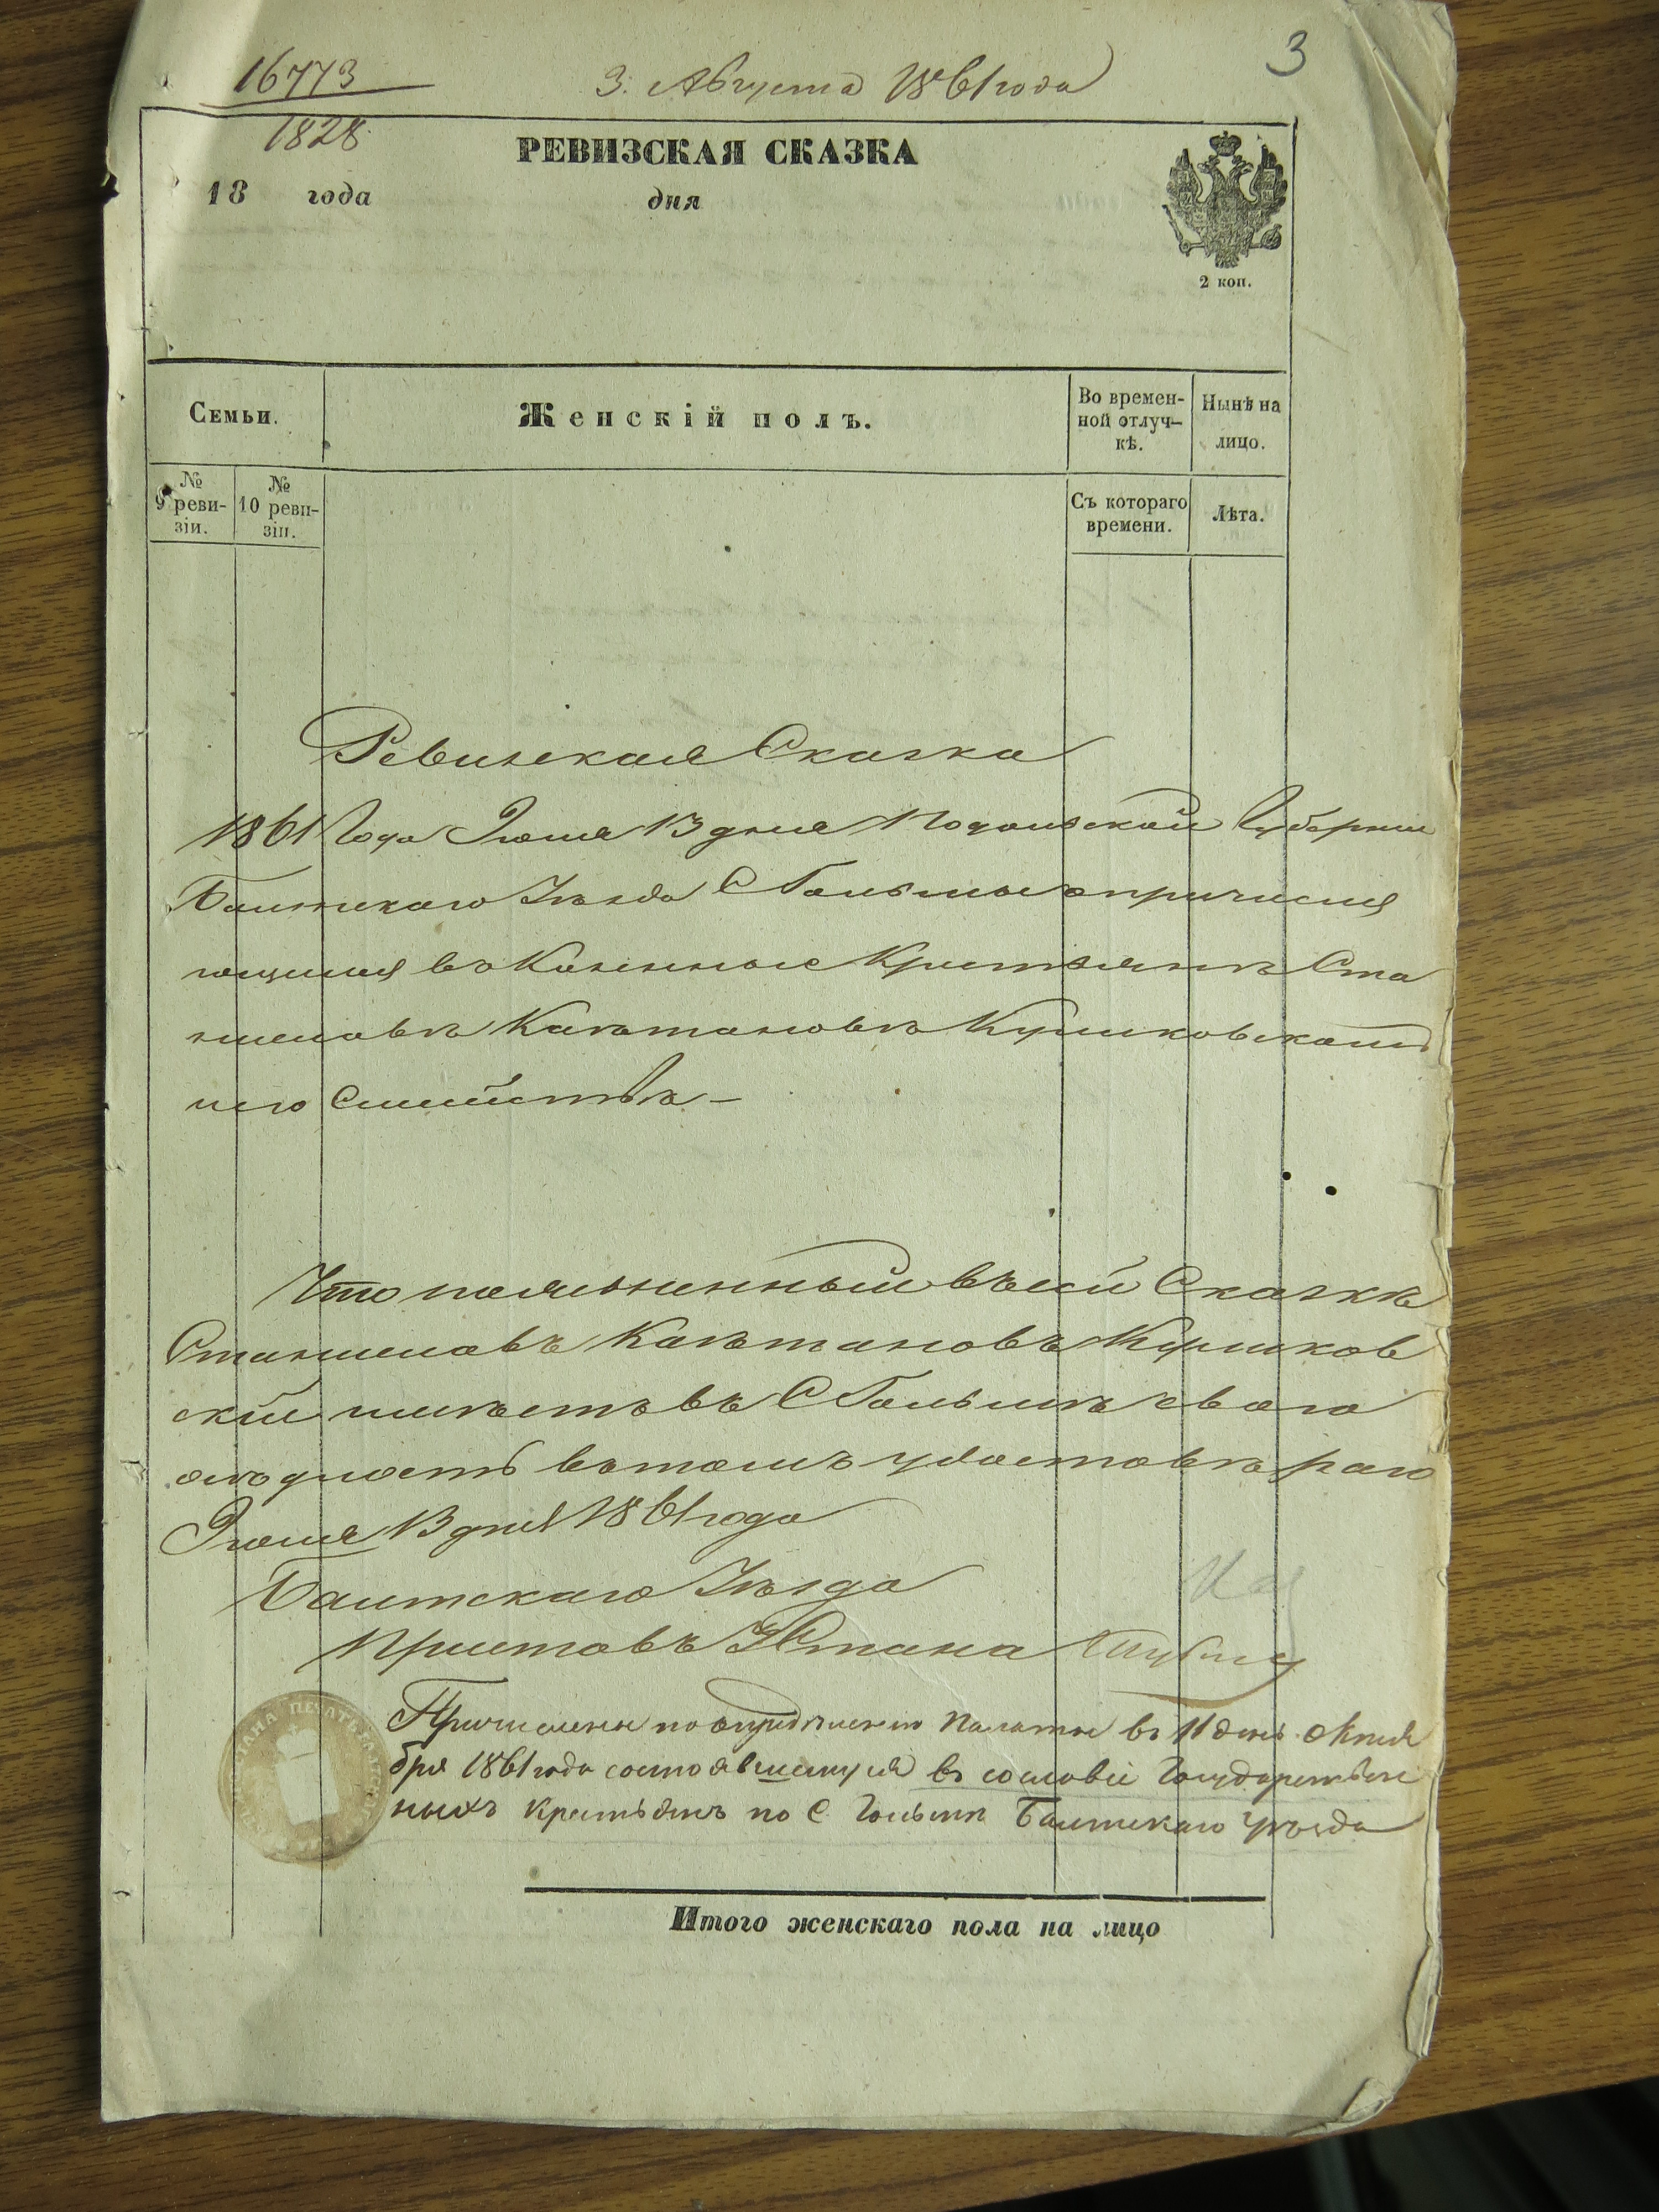 16773
3. Августа 1861 года
3
1828
РЕВИЗСКАЯ СКАЗКА
18 года дня
2 коп.
Семьи.
Женскій полъ.
Во времен-
ной отлуч-
кѣ.
Нынѣ на
лицо.
№
9 реви-
зіи.
№
10 реви-
зіи.
Съ котораго
времени.
Лѣта.
Ревизская Сказка
1861 Года Іюля 13 дня Подольской Губерніи
Балтскаго Уѣзда С Гольмы о причисля
ющимся въ Казенные Крестьянъ Ста
ниславѣ Каетановѣ
его Семействѣ
Что поясненный въ сей Сказкѣ
Станиславъ Каетановъ
скій имѣетъ въ С Гольмѣ свою
осѣдлость въ томъ удостовѣряю
Іюля 13 дня 1861 года
Балтскаго Уѣзда
Приставъ Стана
ПЕЧАТЬ
Причислены по опредѣленію Палаты въ 11 день Октя
бря 1861 года состоявшемуся въ сословіе Государствен
ныхъ крестьянъ по С. Гольмѣ Балтскаго уѣзда
Итого женскаго пола на лицо